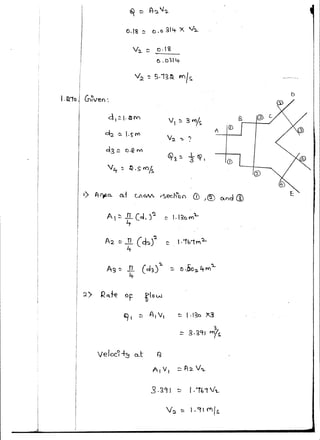 Q = A₂V₂
0.18 = 0.0314 × V₂
V₂ = 0.18 / 0.0314
V₂ = 5.732 m/s
Given:
d₁ = 1.2m
V₁ = 3 m/s
d₂ = 1.5m
V₂ = ?
d₃ = 0.8m
Q₃ = 1/3 Q₁
V₄ = 2.5 m/s
A
B
C
D
E
①
①
②
②
③
③
④
④
1) Area at cross section ①, ② and ③
A₁ = π/4 (d₁)² = 1.130m²
A₂ = π/4 (d₂)² = 1.767m²
A₃ = π/4 (d₃)² = 0.5024m²
2) Rate of flow
Q₁ = A₁V₁ = 1.130 × 3
= 3.391 m³/s
Velocity at B
A₁V₁ = A₂V₂
3.391 = 1.767V₂
V₂ = 1.91 m/s